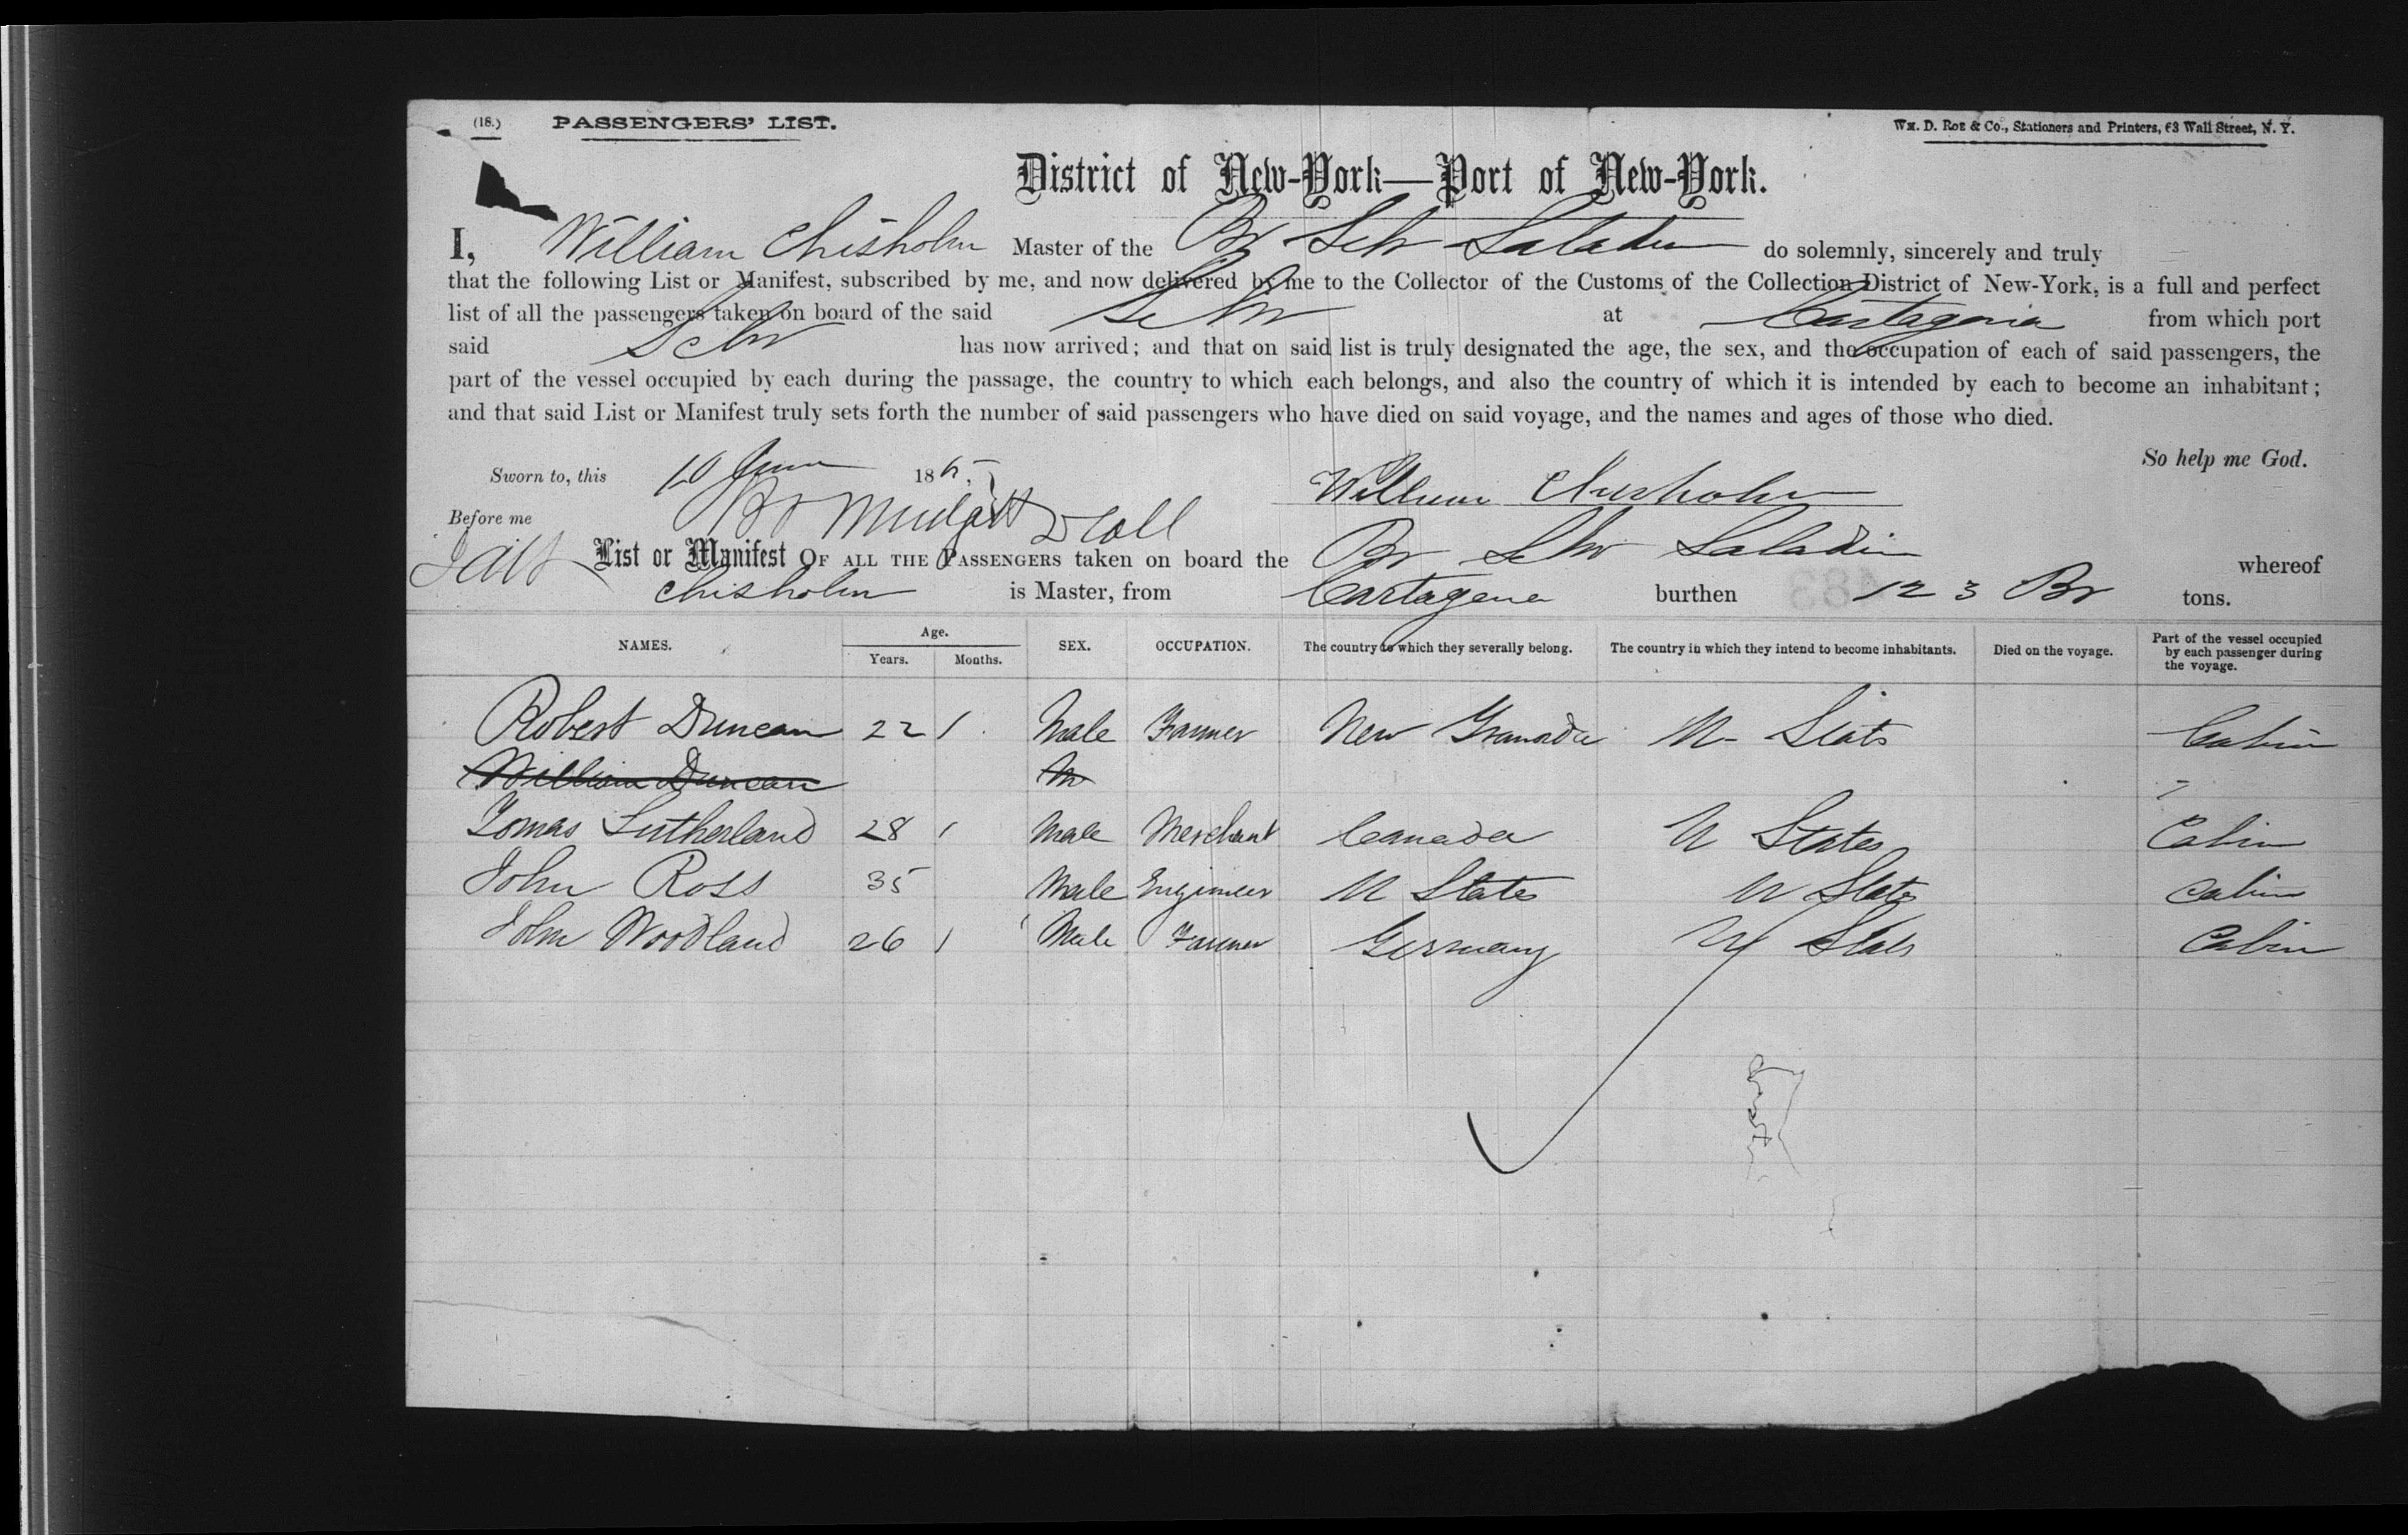 (18.) PASSENGERS' LIST. Wm. D. Roe & Co., Stationers and Printers, 63 Wall Street, N. Y.
District of New-York—Port of New-York.
I, William Chisholm Master of the Br Schr Saladin do solemnly, sincerely and truly
that the following List or Manifest, subscribed by me, and now delivered by me to the Collector of the Customs of the Collection District of New-York, is a full and perfect
list of all the passengers taken on board of the said Schr at Cartagena from which port
said Schr has now arrived; and that on said list is truly designated the age, the sex, and the occupation of each of said passengers, the
part of the vessel occupied by each during the passage, the country to which each belongs, and also the country of which it is intended by each to become an inhabitant;
and that said List or Manifest truly sets forth the number of said passengers who have died on said voyage, and the names and ages of those who died.
So help me God.
Sworn to, this 10 June 1865 William Chisholm
Before me D Coll
List or Manifest OF ALL THE PASSENGERS taken on board the Br Schr Saladin whereof
Chisholm is Master, from Cartagena burthen 123 Br tons.
NAMES. Age. Years. Months. SEX. OCCUPATION. The country to which they severally belong. The country in which they intend to become inhabitants. Died on the voyage. Part of the vessel occupied by each passenger during the voyage.
Robert Duncan 22 1 Male Farmer New Granada U States Cabin
William Duncan M
Tomas Sutherland 28 1 Male Merchant Canada U States Cabin
John Ross 35 Male Engineer U States U States Cabin
John Woodland 26 1 Male Farmer Germany U States Cabin